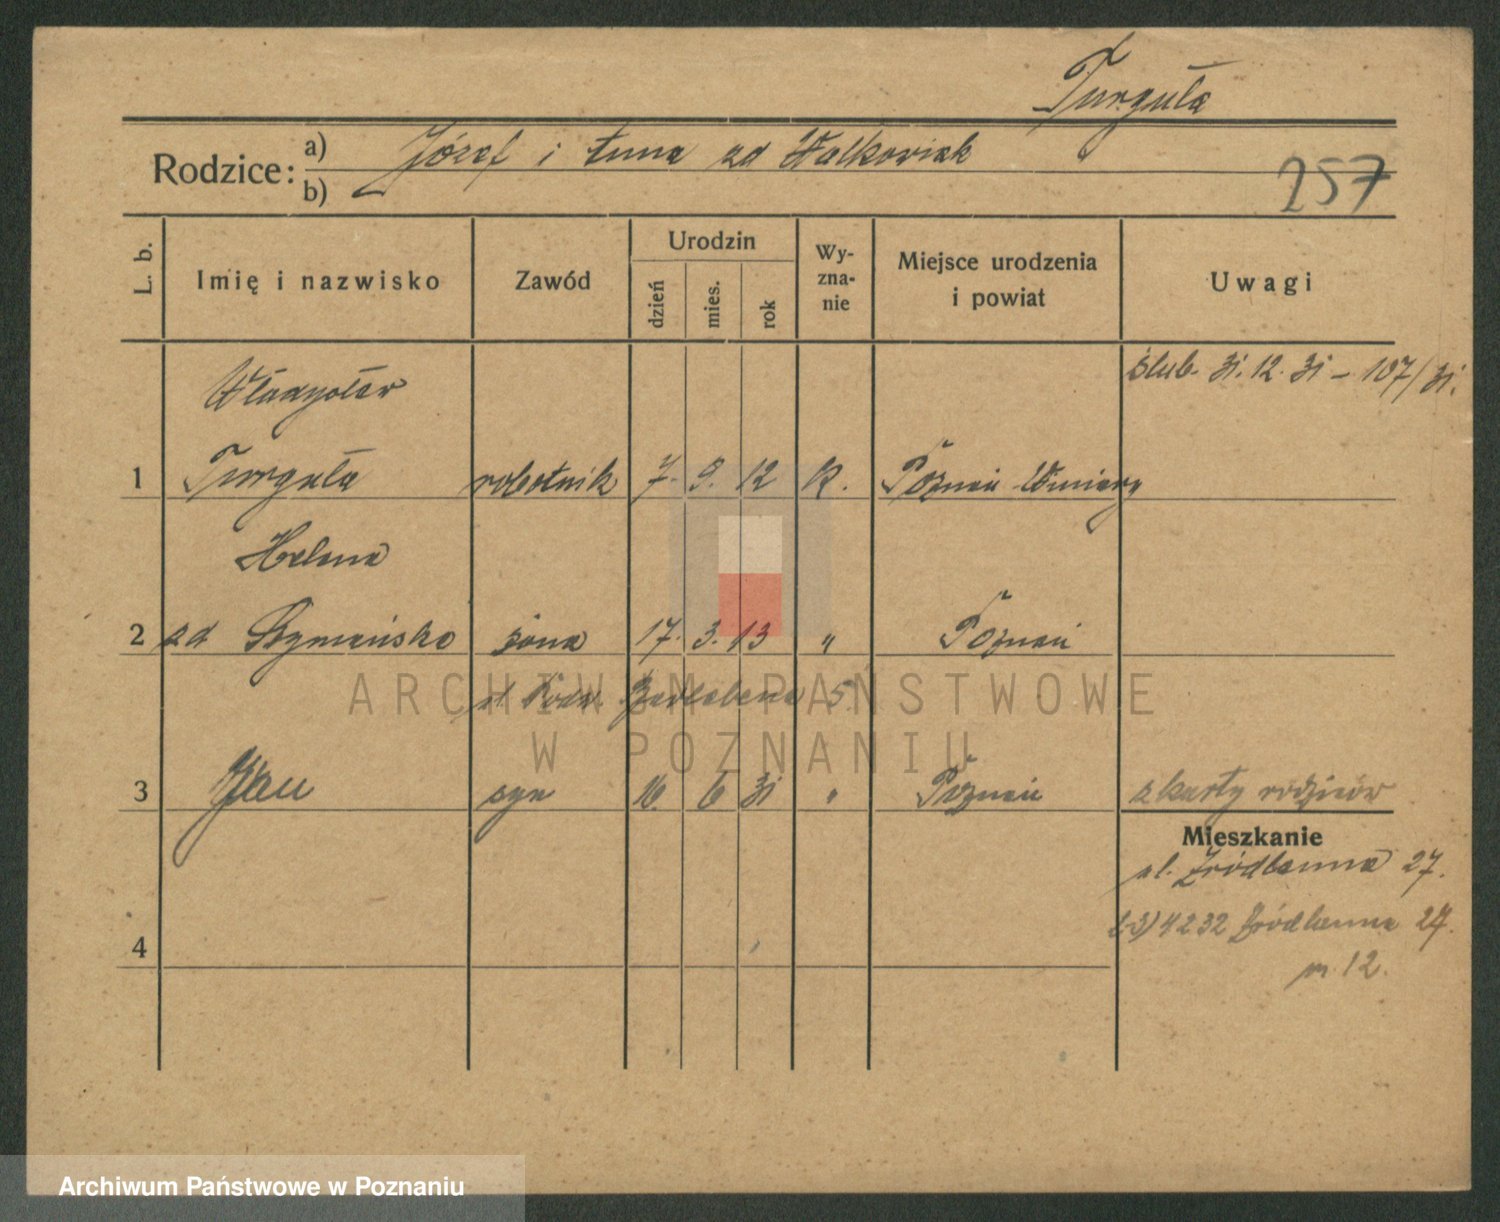 Turguła
Rodzice: a) Józef i Anna zd Walkowiak
b)
257
L. b.
Imię i nazwisko
Zawód
Urodzin
dzień
mies.
rok
Wy-
zna-
nie
Miejsce urodzenia
i powiat
Uwagi
ślub. 31. 12. 31 – 107/31.
Władysław
1 Turguła robotnik 7. 9. 12 K. Poznań Winiary
Helena
2 zd Szymańska żona 17. 3. 13 " Poznań
5.
3 Jan syn 16. 6 31 " Poznań z karty rodziców
Mieszkanie
ul. Źródlanna 27.
4232 Źródlanna 27.
4
m 12.
ARCHIWUM PAŃSTWOWE
W POZNANIU
Archiwum Państwowe w Poznaniu